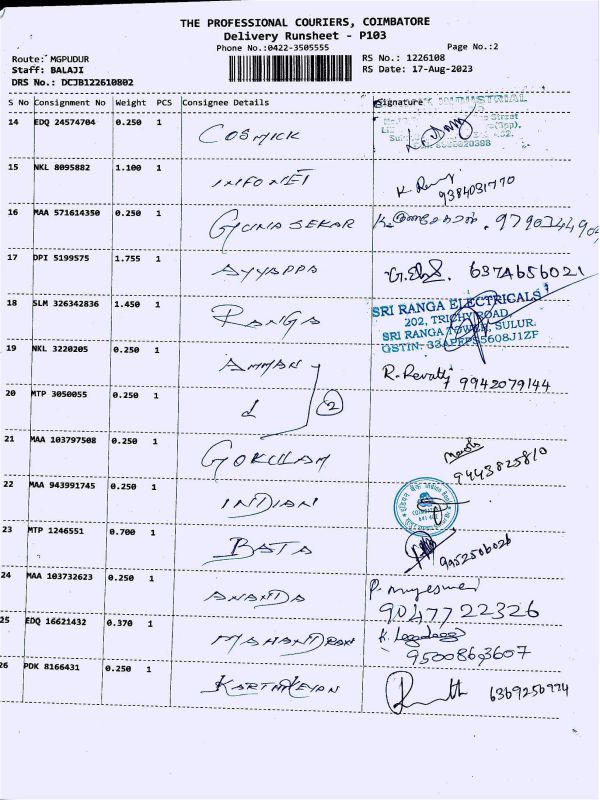 THE PROFESSIONAL COURIERS, COIMBATORE
Delivery Runsheet - P103
Phone No.:0422-3505555
Page No.:2
Route: MGPUDUR
RS No.: 1226108
Staff: BALAJI
RS Date: 17-Aug-2023
DRS No.: DCJB122610802
S No Consignment No Weight PCS Consignee Details Signature
14 EDQ 24574704 0.250 1 COSMICK
15 NKL 8095882 1.100 1 INFONET K 9384031770
16 MAA 571614350 0.250 1 GUNASEKAR
17 DPI 5199575 1.755 1 AYYAPPA 6374656021
18 SLM 326342836 1.450 1 RANGA
SRI RANGA ELECTRICALS
202, TRICHY ROAD,
SRI RANGA TOWER, SULUR.
19 NKL 3220205 0.250 1 AMMAN R. Revathi 9942079144
20 MTP 3050055 0.250 1 2
21 MAA 103797508 0.250 1 GOKULAM 9443825810
22 MAA 943991745 0.250 1 INDIAN
23 MTP 1246551 0.700 1 BATA 9952506026
24 MAA 103732623 0.250 1 ANANDA P. 9047722326
25 EDQ 16621432 0.370 1 K.
26 PDK 8166431 0.250 1 KARTHIKEYAN